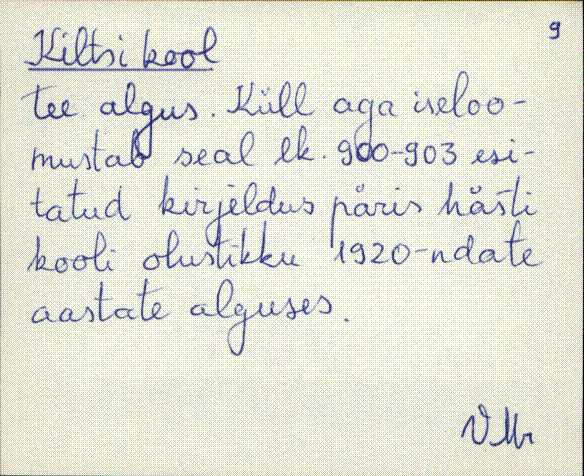 9
Kiltsi kool
tee algus. Küll aga iseloo-
mustab seal lk. 900-903 esi-
tatud kirjeldus päris hästi
kooli olustikku 1920-ndate
aastate alguses.